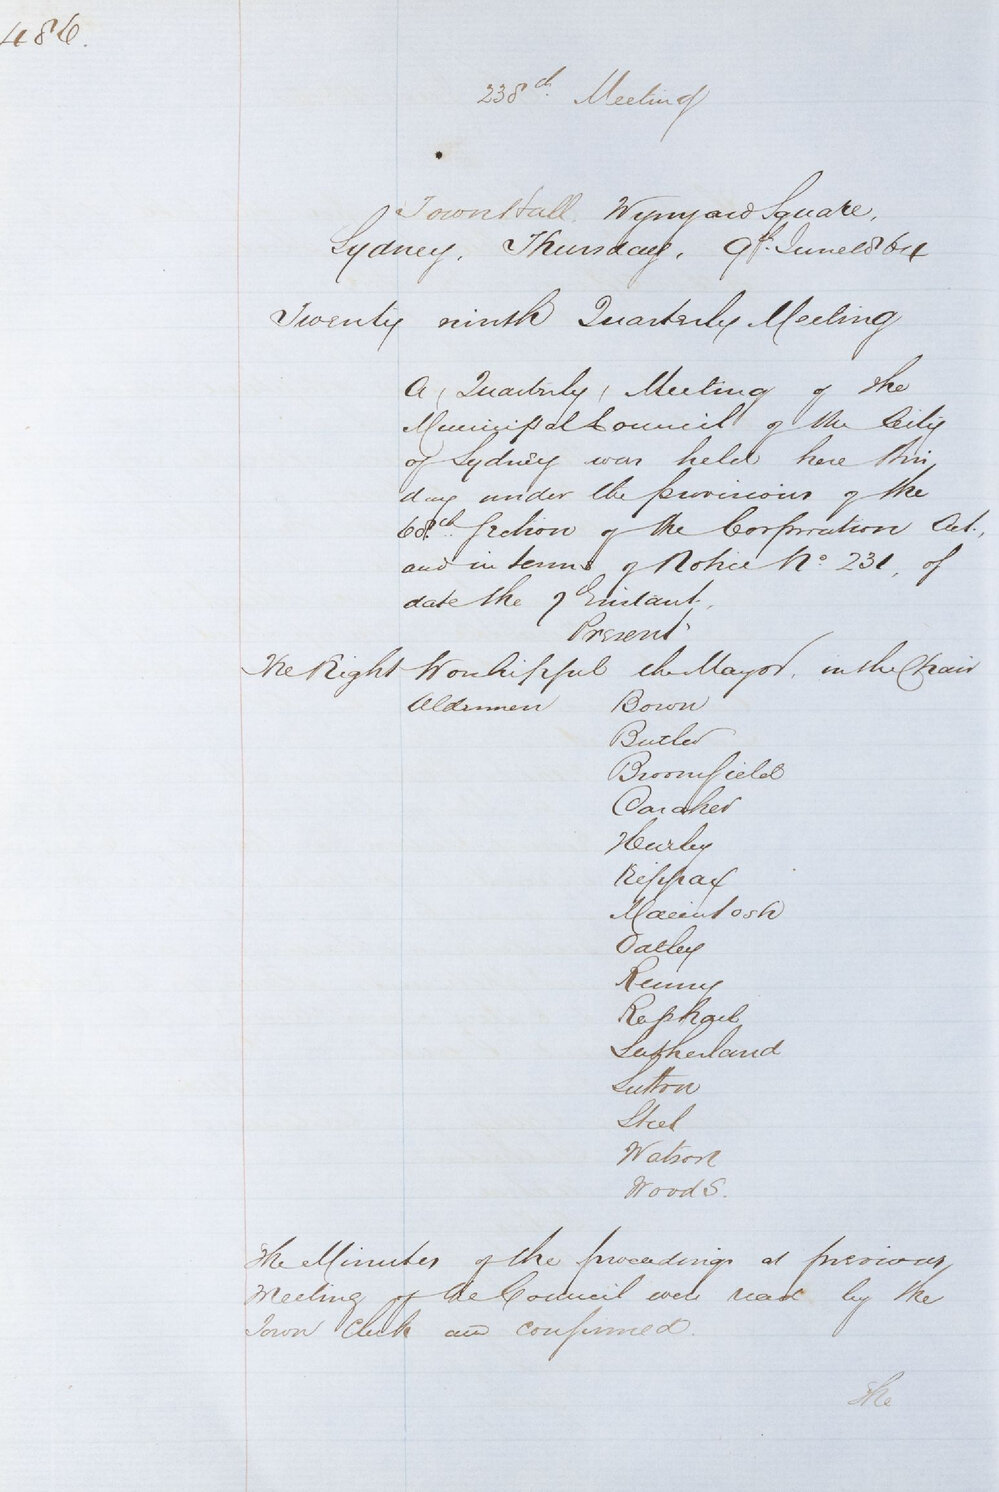 486.
238th Meeting
Town Hall, Wynyard Square,
Sydney, Thursday, 9th June 1864
Twenty ninth Quarterly Meeting
A (Quarterly) Meeting of the
Municipal Council of the City
of Sydney was held here this
day under the provisions of the
68th Section of the Corporation Act,
and in terms of Notice No. 231, of
date the 7th Instant.
Present
The Right Worshipful the Mayor, in the Chair
Aldermen Bown
Butler
Broomfield
Caraher
Hurley
Kippax
Macintosh
Oatley
Renny
Raphael
Sutherland
Sutton
Steel
Watson
Woods.
The Minutes of the proceedings at previous
Meeting of the Council were read by the
Town Clerk and confirmed.
The